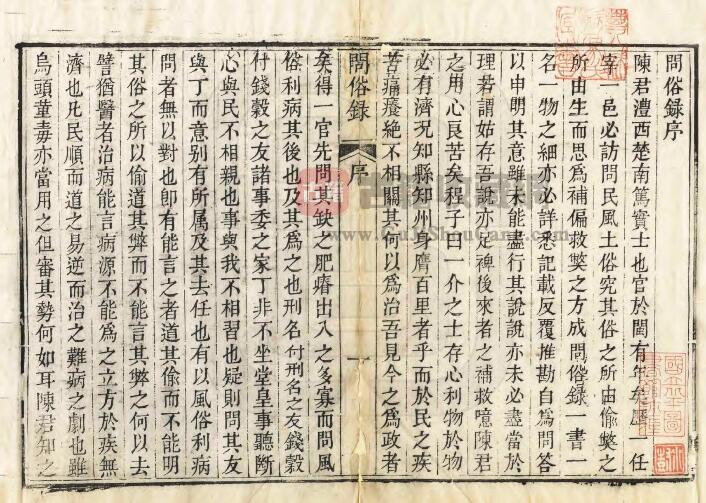 問俗錄序
陳君澧西楚南篤實士也官於閩有年矣歷一任
宰一邑必訪問民風土俗究其俗之所由偷獘之
所由生而思爲補偏救獘之方成問俗錄一書一
名一物之細亦必詳悉記載反覆推勘自爲問答
以申明其意雖未能盡行其說說亦未必盡當於
理若謂姑存吾說亦足裨後來者之補救噫陳君
之用心良苦矣程子曰一介之士存心利物於物
必有濟况知縣知州身膺百里者乎而於民之疾
苦痛癢絶不相關其何以爲治吾見今之爲政者
問俗錄
序
一
矣得一官先問其缺之肥瘠出入之多寡而問風
俗利病其後也及其爲之也刑名付刑名之友錢穀
付錢穀之友諸事委之家丁非不坐堂皇事聽斷
心與民不相親也事與我不相習也疑則問其友
與丁而意别有所属及其去任也有以風俗利病
問者無以對也卽有能言之者道其偷而不能明
其俗之所以偷道其獘而不能言其獘之何以去
譬猶醫者治病能言病源不能爲之立方於疾無
濟也凡民順而道之易逆而治之難病之劇也雖
烏頭菫毒亦當用之但審其勢何如耳陳君知之
www.GuJiShouCang.com